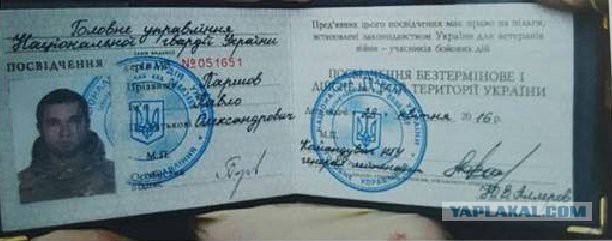 Головне управління
Національної гвардії України
ПОСВІДЧЕННЯ
№051651
Серія
Прізвище
Паршов
Павло
Олександрович
М.П.
Особистий
підпис
Пред'явник цього посвідчення має право на пільги,
встановлені законодавством України для ветеранів
війни – учасників бойових дій
ПОСВІДЧЕННЯ БЕЗТЕРМІНОВЕ І
ДІЙСНЕ НА ВСІЙ ТЕРИТОРІЇ УКРАЇНИ
2016 р.
М.П.
Командувач НГУ
генерал-лейтенант
Ю.В.Аллеров
YAPLAKAL.COM